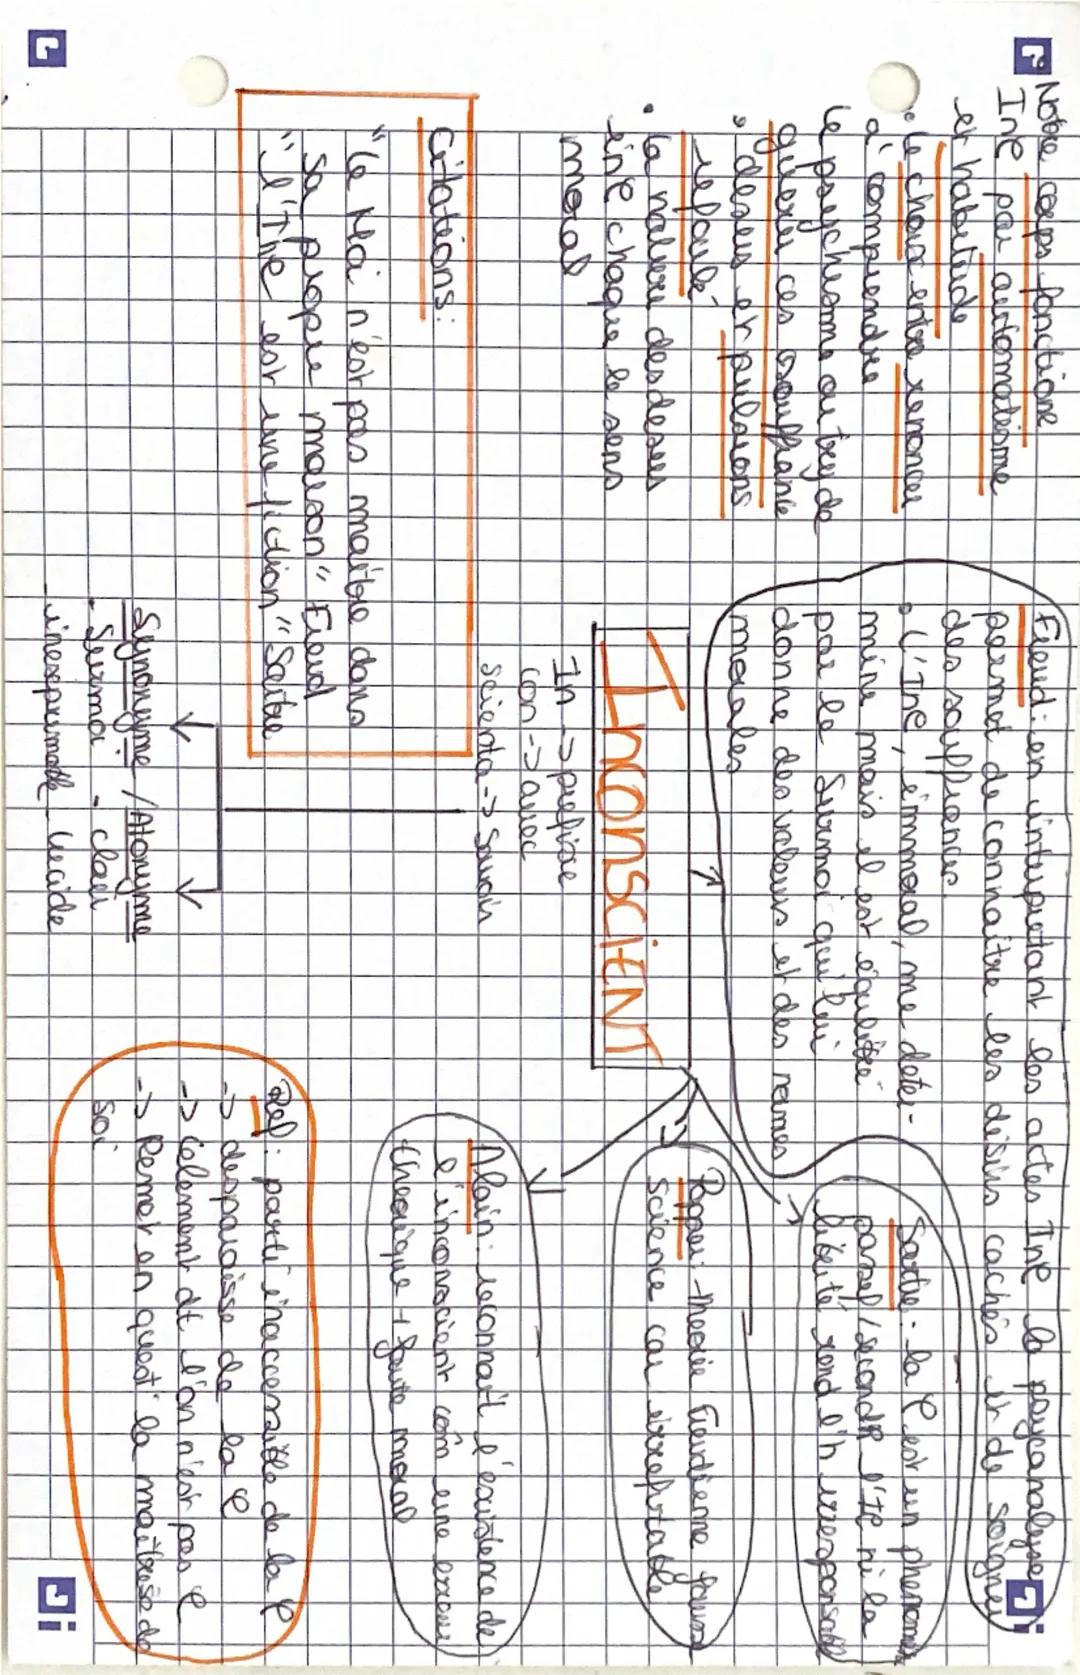 Notre corps fonctionne
InC par automatisme
et habitude
• Le choix entre renoncer
à comprendre
le psychisme ou try de
guérir ces souffrance
• desirs et pulsions
refoulé
• la nature des desirs
inC choque le sens
moral
Freud: en interpretant les actes InC la psycanalyse
permet de connaitre les désirs cachés et de soigner
des souffrences.
• L'InC, immoral, me déter-
mine mais il est équilibré
par le Surmoi qui lui
donne des valeurs et des normes
morales
Sartre: la C est un phenomene
passif/secondR l'IC ni la
liberté rend l'h irresponsable
Popper: theorie freudienne fausse
science car irrefutable
Alain: reconnait l'existence de
l'inconscient com une erreur
théorique + faute moral
InconsciENT
In -> prefixe
con -> avec
scienta -> Savoir
Citations:
"Le Moi n'est pas maitre dans
sa propre maison" Freud
"l'InC est une fiction" Sartre
Synonyme / Atonyme
- Surmoi - clair
- inexprimable - lucide
Def: parti inaccessible de la C
-> disparaisse de la C
-> l'élement dt l'on n'est pas C
-> Remet en quest° la maitrise de
soi